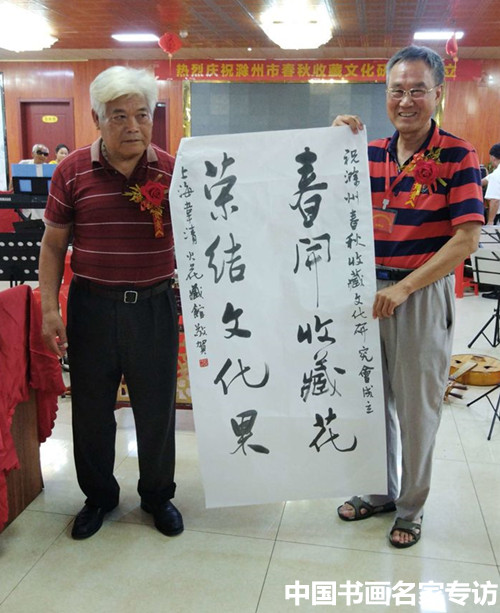 热烈庆祝滁州市春秋收藏文化研 立
祝滁州春秋收藏文化研究會成立
春開收藏花
荣结文化果
上海韋清火花藏館敬賀
中国书画名家专访